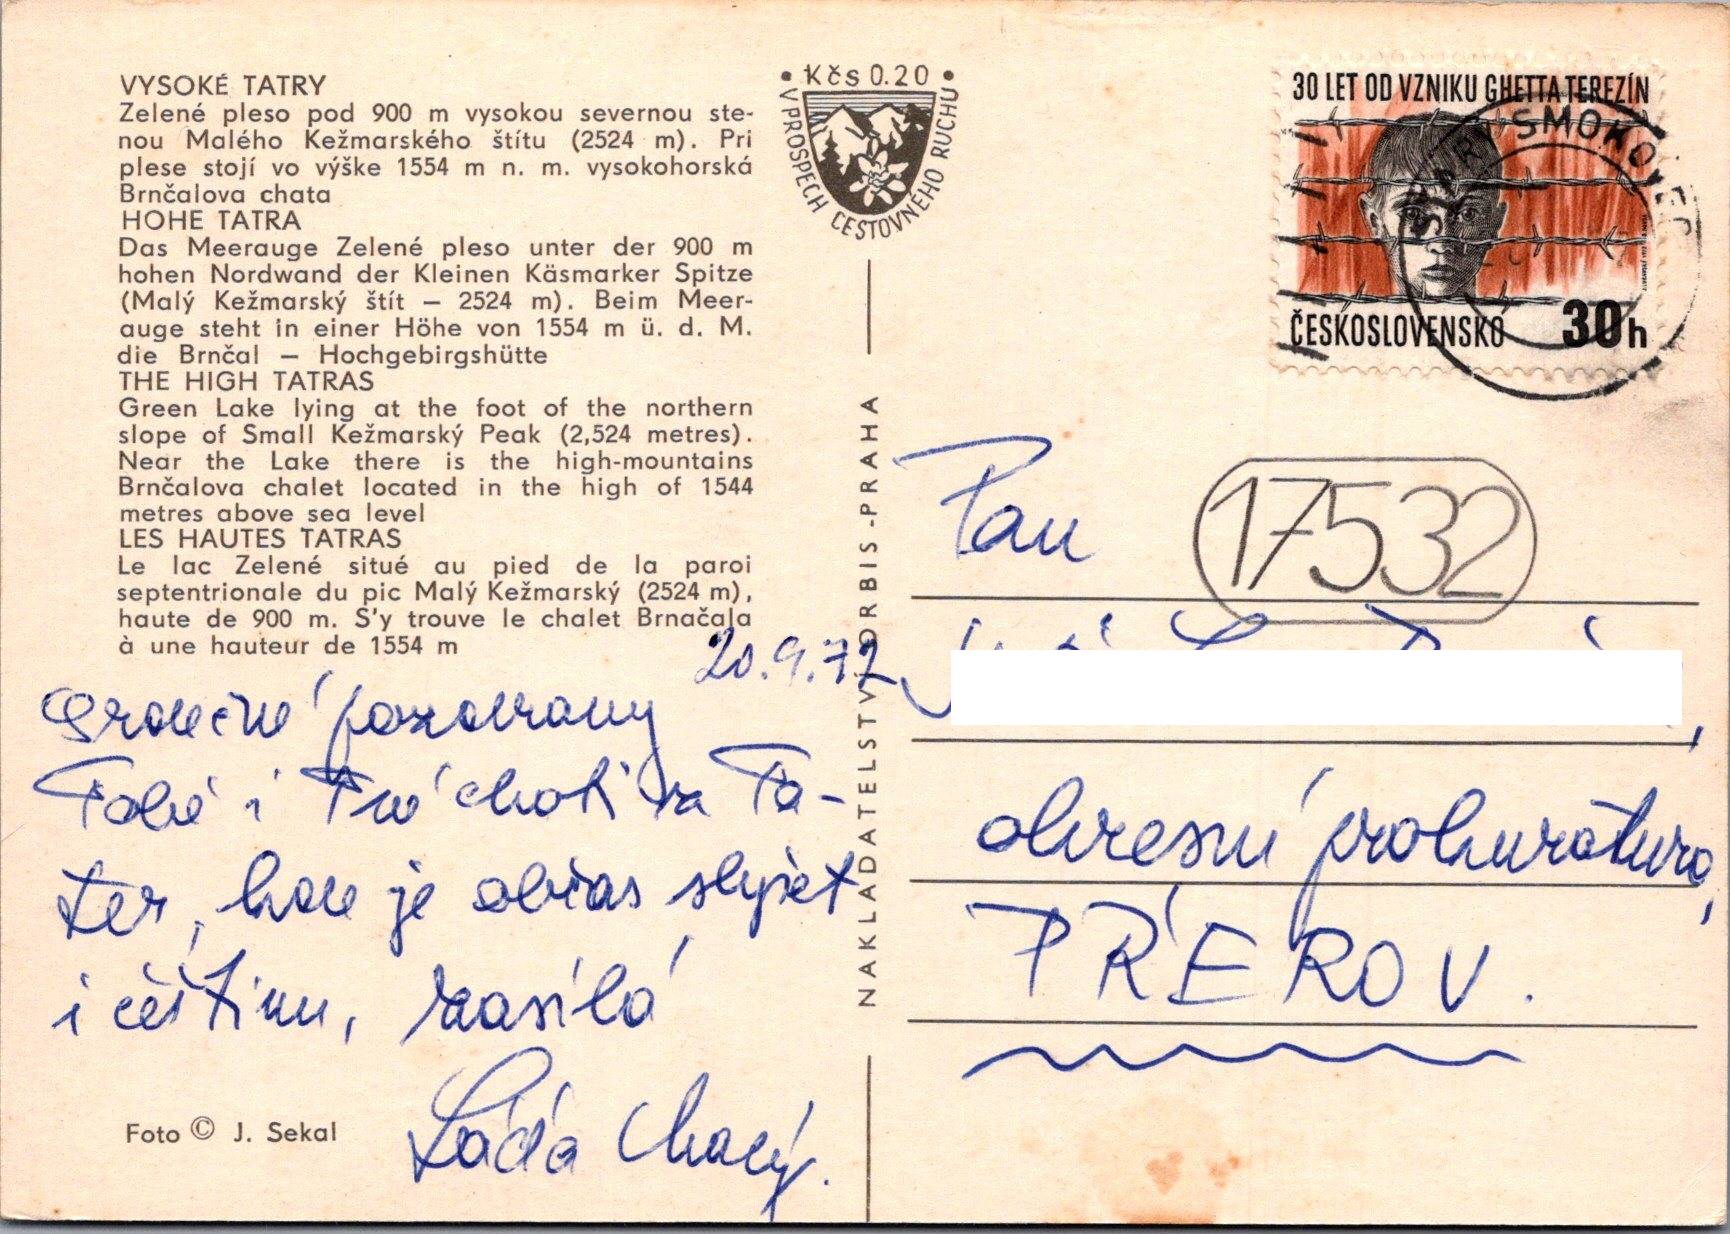 VYSOKÉ TATRY
Zelené pleso pod 900 m vysokou severnou ste-
nou Malého Kežmarského štítu (2524 m). Pri
plese stojí vo výške 1554 m n. m. vysokohorská
Brnčalova chata
HOHE TATRA
Das Meerauge Zelené pleso unter der 900 m
hohen Nordwand der Kleinen Käsmarker Spitze
(Malý Kežmarský štít – 2524 m). Beim Meer-
auge steht in einer Höhe von 1554 m ü. d. M.
die Brnčal – Hochgebirgshütte
THE HIGH TATRAS
Green Lake lying at the foot of the northern
slope of Small Kežmarský Peak (2,524 metres).
Near the Lake there is the high-mountains
Brnčalova chalet located in the high of 1544
metres above sea level
LES HAUTES TATRAS
Le lac Zelené situé au pied de la paroi
septentrionale du pic Malý Kežmarský (2524 m),
haute de 900 m. S'y trouve le chalet Brnačala
à une hauteur de 1554 m
20.9.72
Srdečné pozdravy
Tobě i Tvé choti z Ta-
ter, kde je občas slyšet
i češtinu, zasílá
Láďa
Foto © J. Sekal
Kčs 0.20
V PROSPECH CESTOVNÉHO RUCHU
NAKLADATELSTVÍ ORBIS-PRAHA
30 LET OD VZNIKU GHETTA TEREZÍN
ČESKOSLOVENSKO 30h
STARÝ SMOKOVEC
17532
Pan
okresní prokuratura,
PŘEROV.